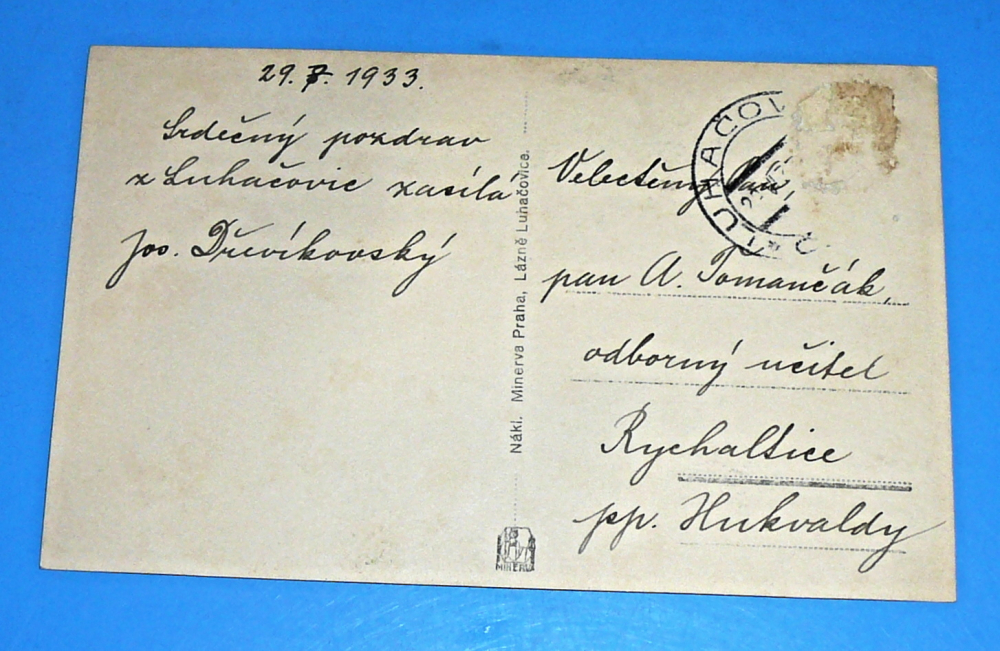 29. 7. 1933.
Srdečný pozdrav
z Luhačovic zasílá
Jos. Dřevíkovský
Nákl. Minerva Praha, Lázně Luhačovice.
MINERVA
LUHAČOV
Velectěný pan
pan A. Tomančák,
odborný učitel
Rychaltice
pp. Hukvaldy